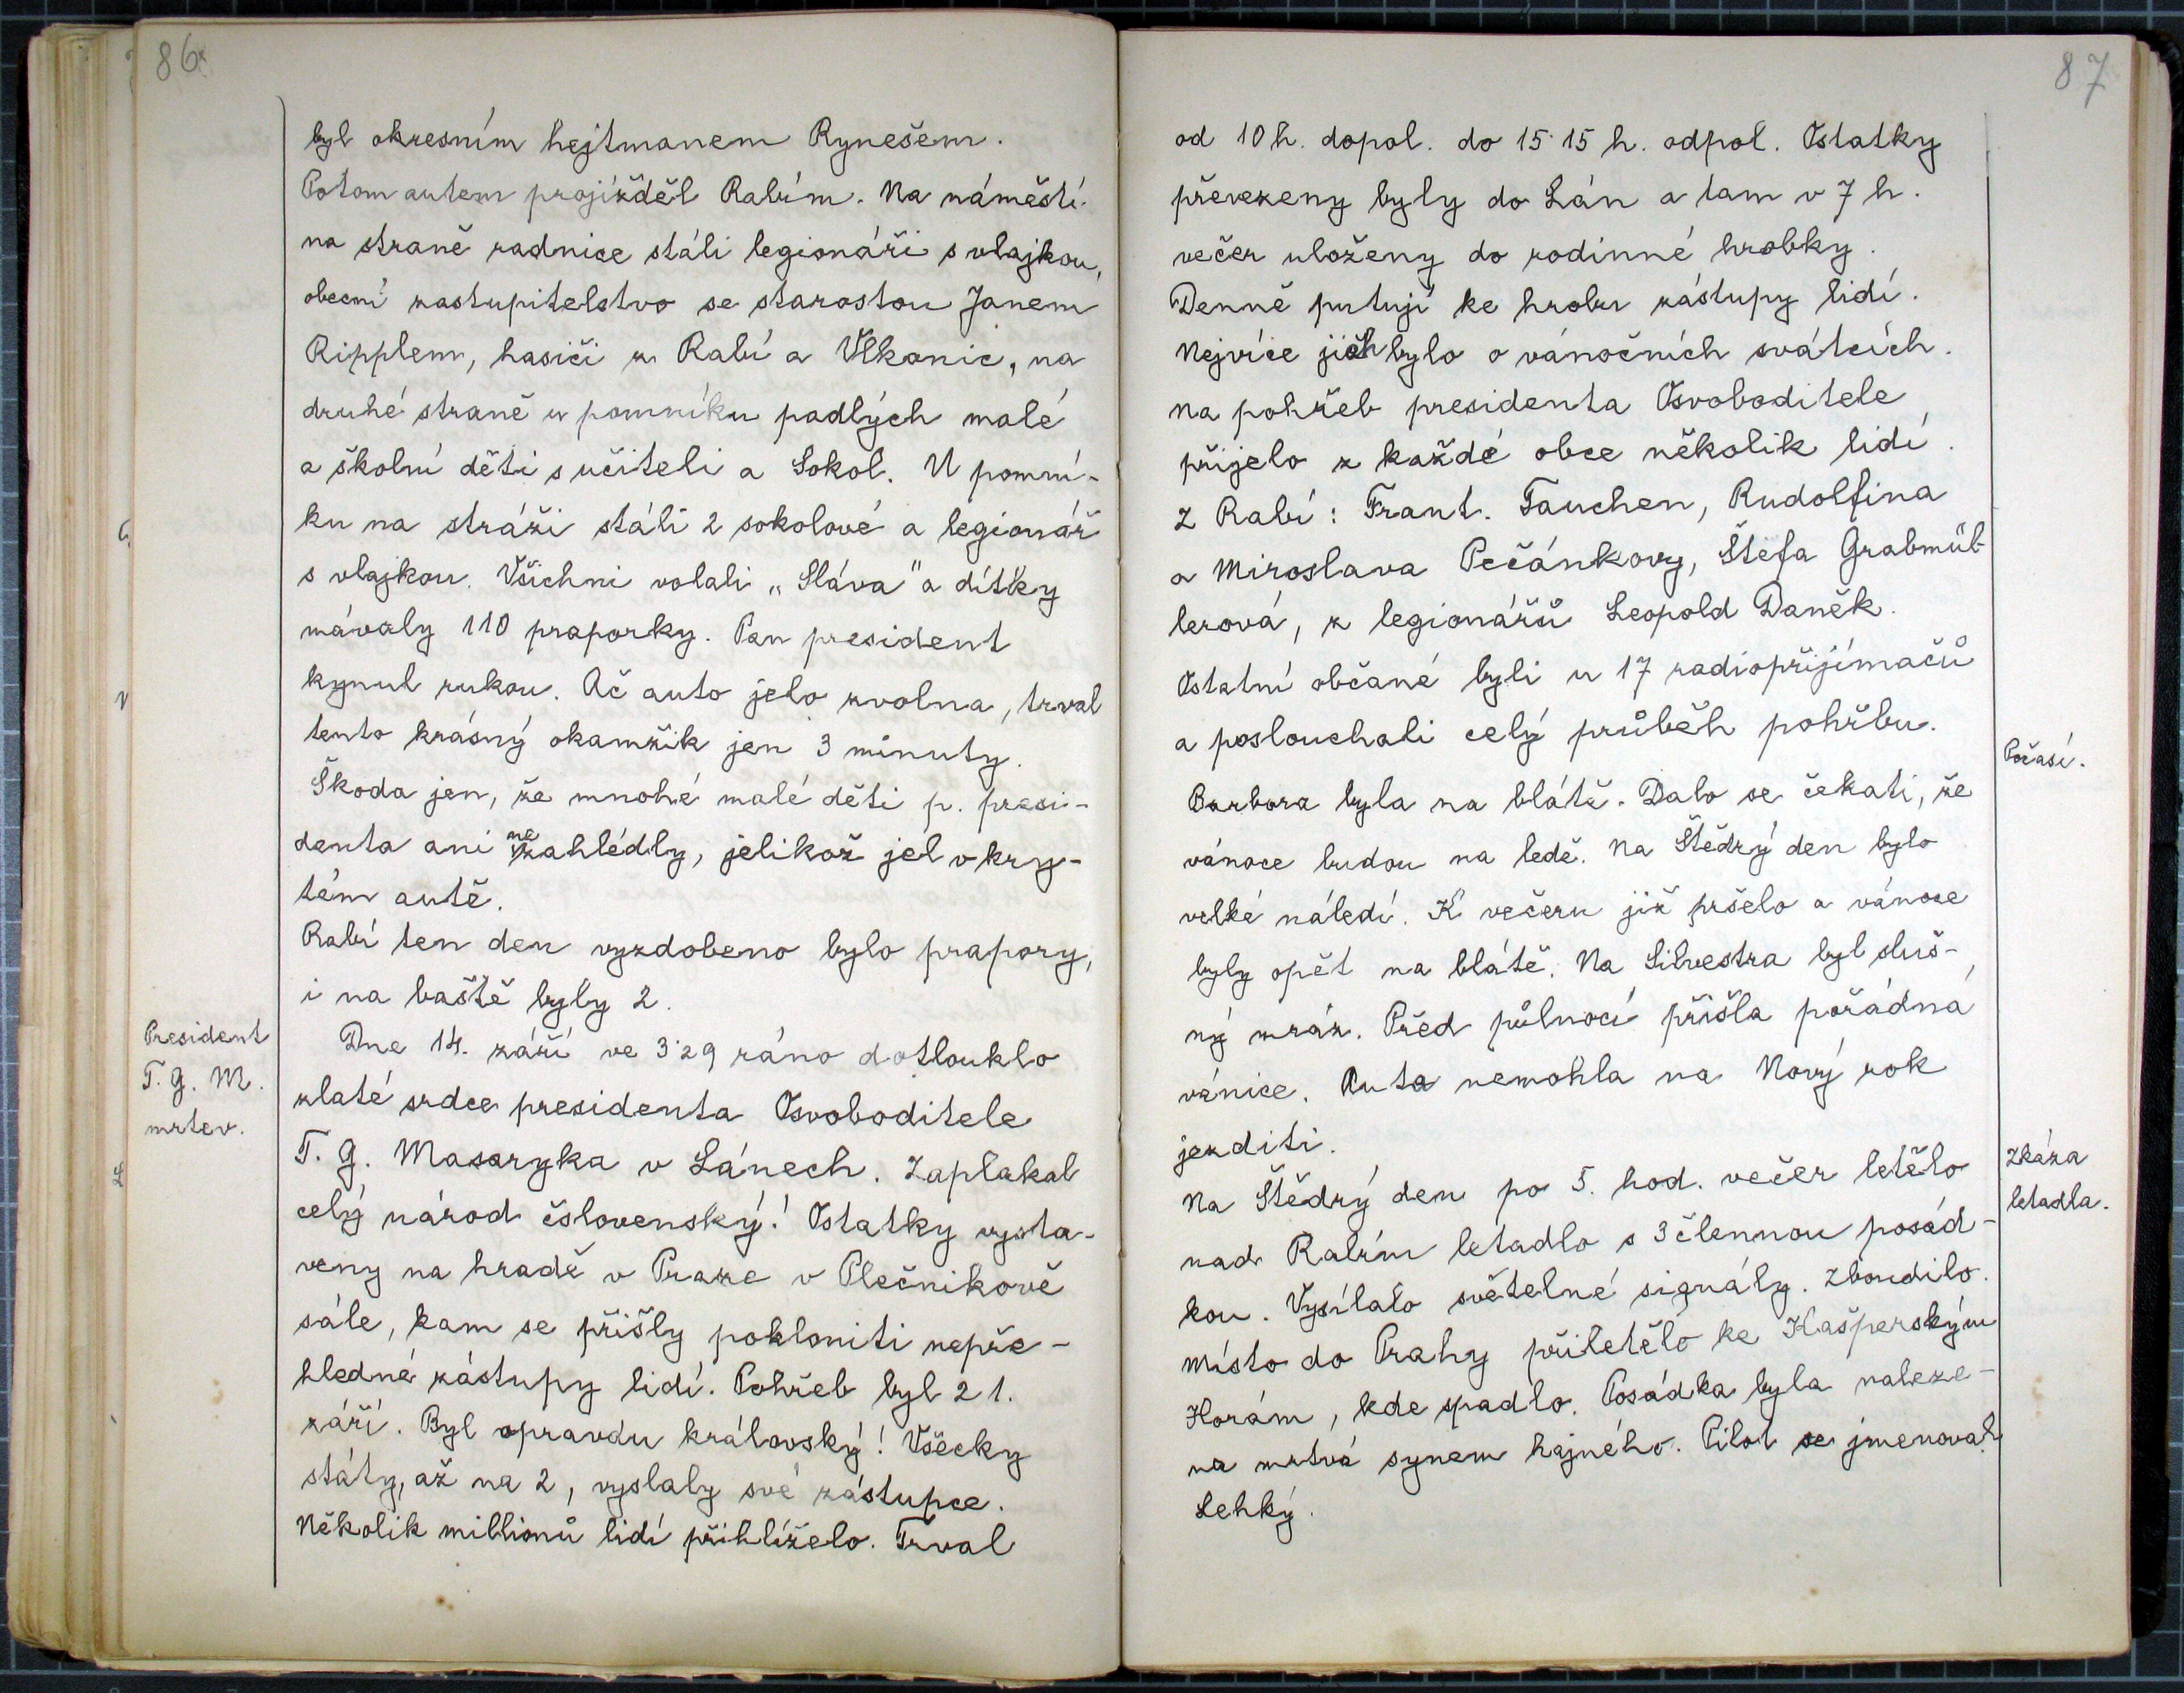 86
byl okresním hejtmanem Rynešem.
Potom autem projížděl Rabím. Na náměstí
na straně radnice stáli legionáři s vlajkou,
obecní zastupitelstvo se starostou Janem
Ripplem, hasiči z Rabí a Vlkonic, na
druhé straně u pomníku padlých malé
a školní děti s učiteli a Sokol. U pomní-
ku na stráži stáli 2 sokolové a legionář
s vlajkou. Všichni volali „Sláva" a dítky
mávaly 110 praporky. Pan president
kynul rukou. Ač auto jelo zvolna, trval
tento krásný okamžik jen 3 minuty.
Škoda jen, že mnohé malé děti p. presi-
denta ani nezahlédly, jelikož jel v kry-
tém autě.
Rabí ten den vyzdobeno bylo prapory,
i na baště byly 2.
President
T. G. M.
mrtev.
Dne 14. září ve 3·29 ráno dotlouklo
zlaté srdce presidenta Osvoboditele
T. G. Masaryka v Lánech. Zaplakal
celý národ čslovenský! Ostatky vysta-
veny na hradě v Praze v Plečnikově
sále, kam se přišly pokloniti nepře-
hledné zástupy lidí. Pohřeb byl 21.
září. Byl opravdu královský! Všecky
státy, až na 2, vyslaly své zástupce.
Několik millionů lidí přihlíželo. Trval
87
od 10 h. dopol. do 15·15 h. odpol. Ostatky
převezeny byly do Lán a tam v 7 h.
večer uloženy do rodinné hrobky.
Denně putují ke hrobu zástupy lidí.
Nejvíce jich bylo o vánočních svátcích.
Na pohřeb presidenta Osvoboditele
přijelo z každé obce několik lidí.
Z Rabí: Frant. Tauchen, Rudolfina
a Miroslava Pečánkovy, Štefa Grabmül-
lerová, z legionářů Leopold Daněk.
Ostatní občané byli u 17 radiopřijímačů
a poslouchali celý průběh pohřbu.
Počasí.
Barbora byla na blátě. Dalo se čekati, že
vánoce budou na ledě. Na Štědrý den bylo
velké náledí. K večeru již pršelo a vánoce
byly opět na blátě. Na Silvestra byl sluš-
ný mráz. Před půlnocí přišla pořádná
vánice. Auta nemohla na Nový rok
jezditi.
Zkáza
letadla.
Na Štědrý den po 5. hod. večer letělo
nad Rabím letadlo s 3člennou posád-
kou. Vysílalo světelné signály. Zbloudilo.
Místo do Prahy přiletělo ke Kašperským
Horám, kde spadlo. Posádka byla naleze-
na mrtvá synem hajného. Pilot se jmenoval
Lehký.